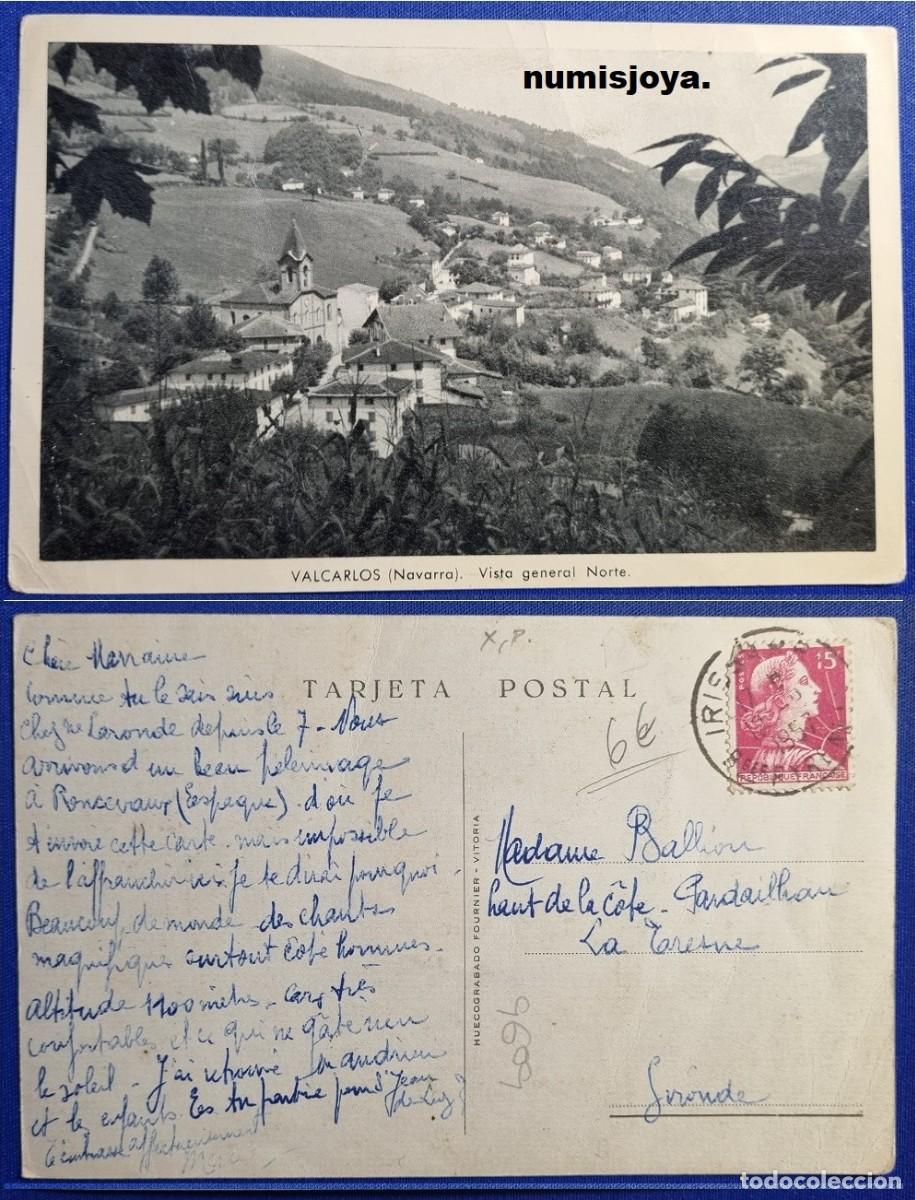 numisjoya.
VALCARLOS (Navarra). Vista general Norte.
X.P.
TARJETA POSTAL
6€
15
REPUBLIQUE FRANÇAISE
Chère Marraine
comme tu le sais suis
chez Me Laronde depuis le 7 - Nous
arrivons d'un beau pelerinage
à Roncevaux (Espagne) - d'où je
t'envoie cette carte mais impossible
de l'affranchir ici. je te dirai pourquoi.
Beaucoup de monde des chants
magnifiques surtout côté hommes -
altitude 1100 mètres - cars très
confortables et ce qui ne gâte rien
le soleil - J'ai retrouvé
et le enfants. Es tu partie pour St Jean
de Luz ?
t'embrasse affectueusement
HUECOGRABADO FOURNIER - VITORIA
Madame Ballion
haut de la côte - Pardailhan
La Tresne
Gironde
todocoleccion